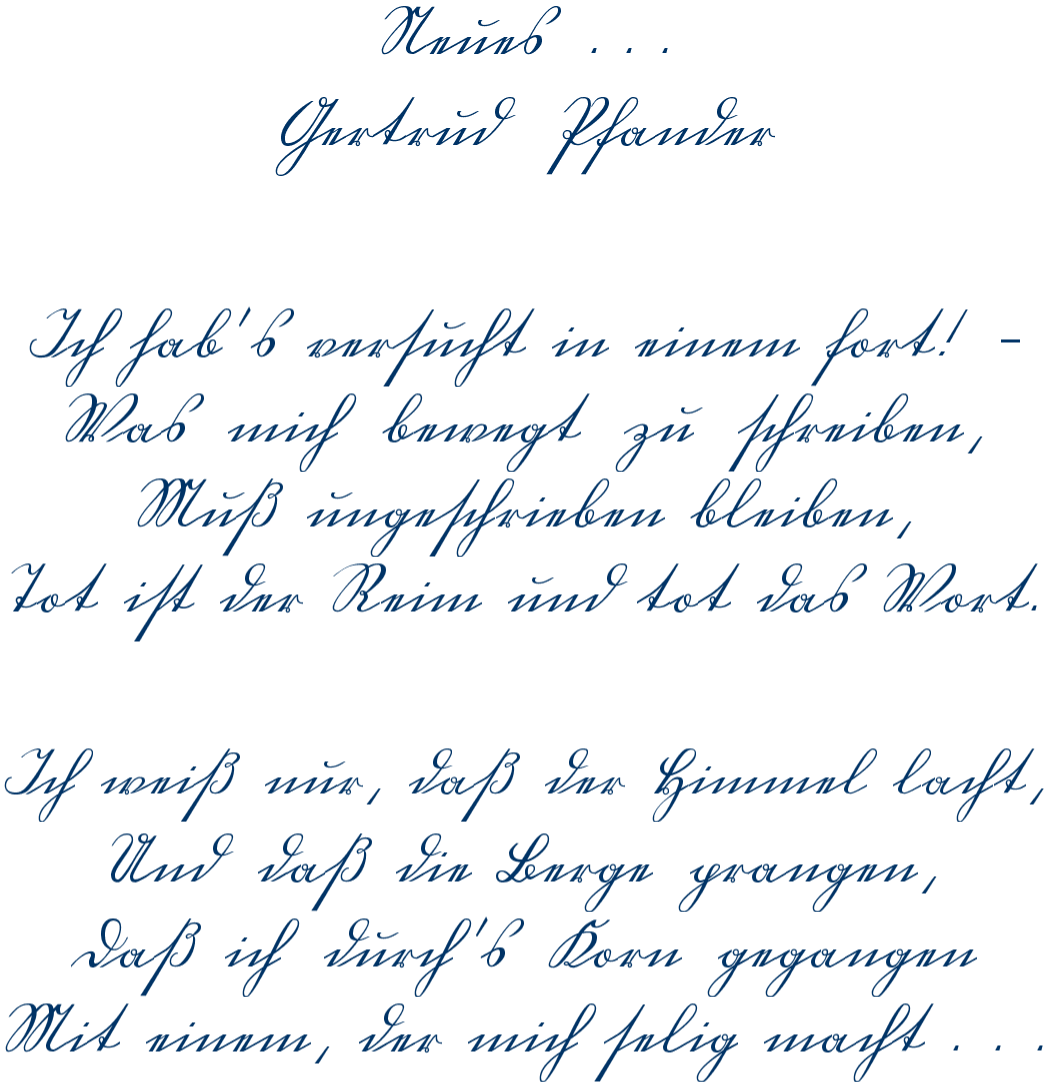 Neues . . .
Gertrud Pfander
Ich hab's versucht in einem fort! –
Was mich bewegt zu schreiben,
Muß ungeschrieben bleiben,
Tot ist der Reim und tot das Wort.
Ich weiß nur, daß der Himmel lacht,
Und daß die Berge prangen,
Daß ich durch's Korn gegangen
Mit einem, der mich selig macht . . .